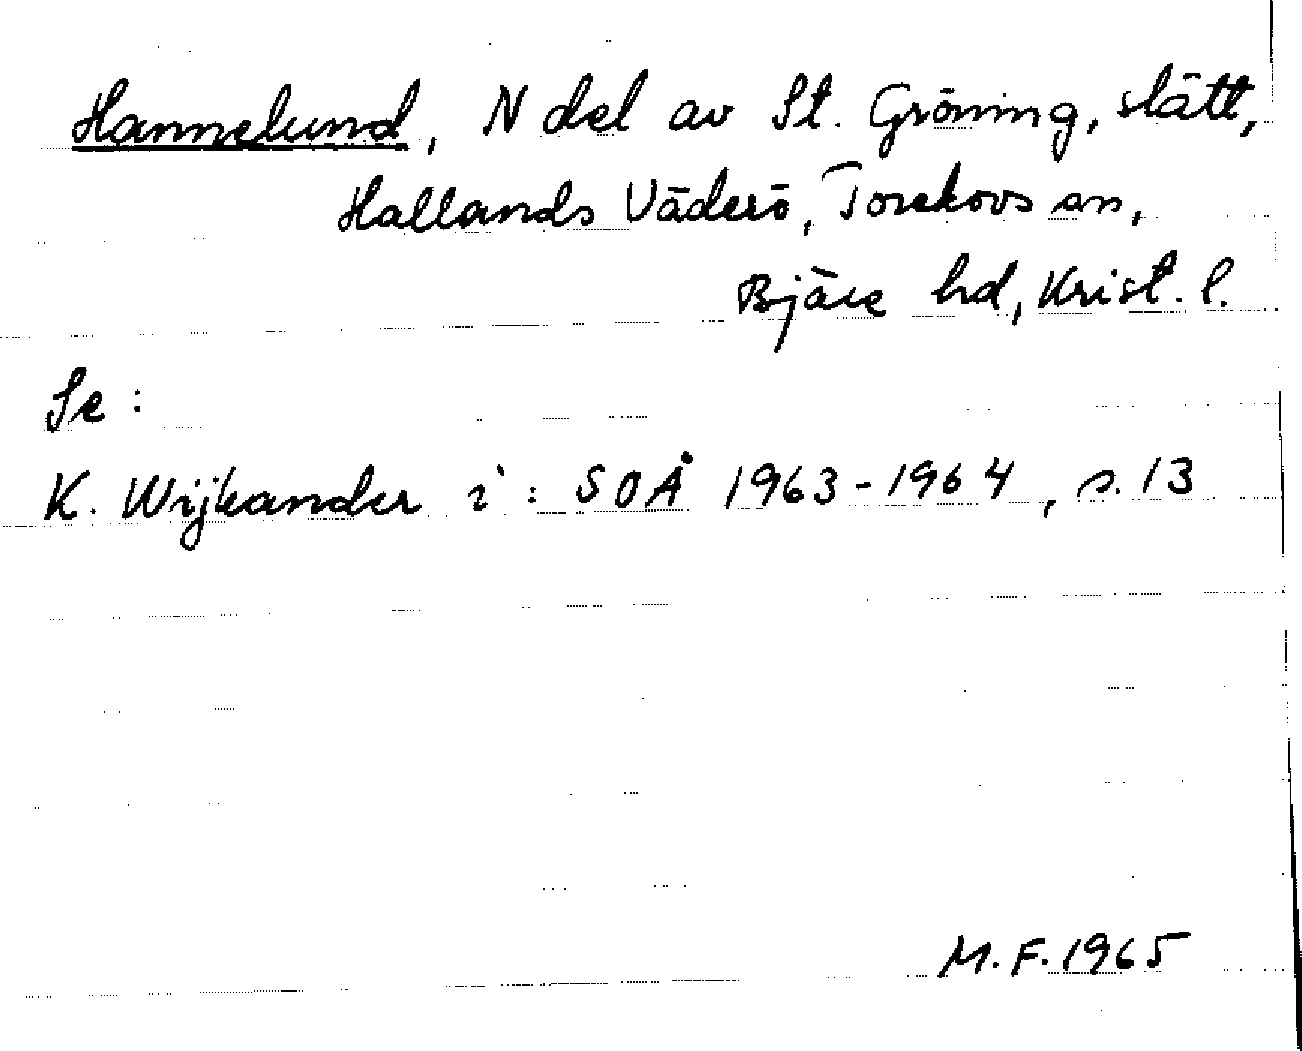 Hannelund, N del av St. Gröning, slätt,
Hallands Väderö, Torekovs sn,
Bjäre hd, Krist. l.
Se:
K. Wijkander i: SOÅ 1963-1964, s. 13
M.F. 1965